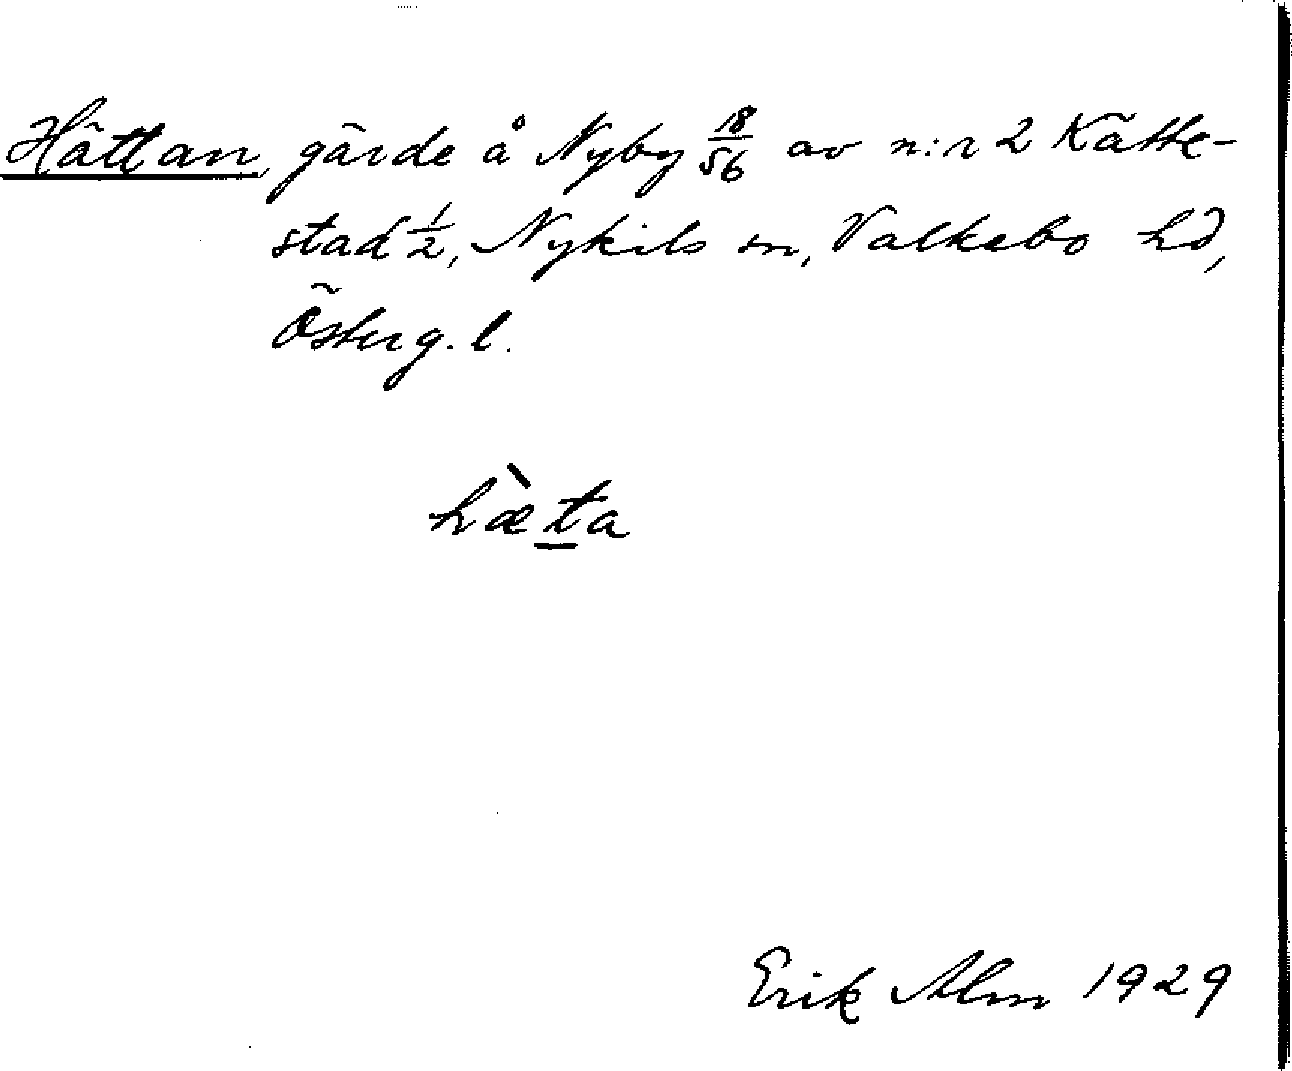 Hättan, gärde å Nyby 18/56 av n:r 2 Kätte-
stad 1/2, Nykils sn, Valkebo hd,
Österg. l.
hæ̀ta
Erik Alm 1929